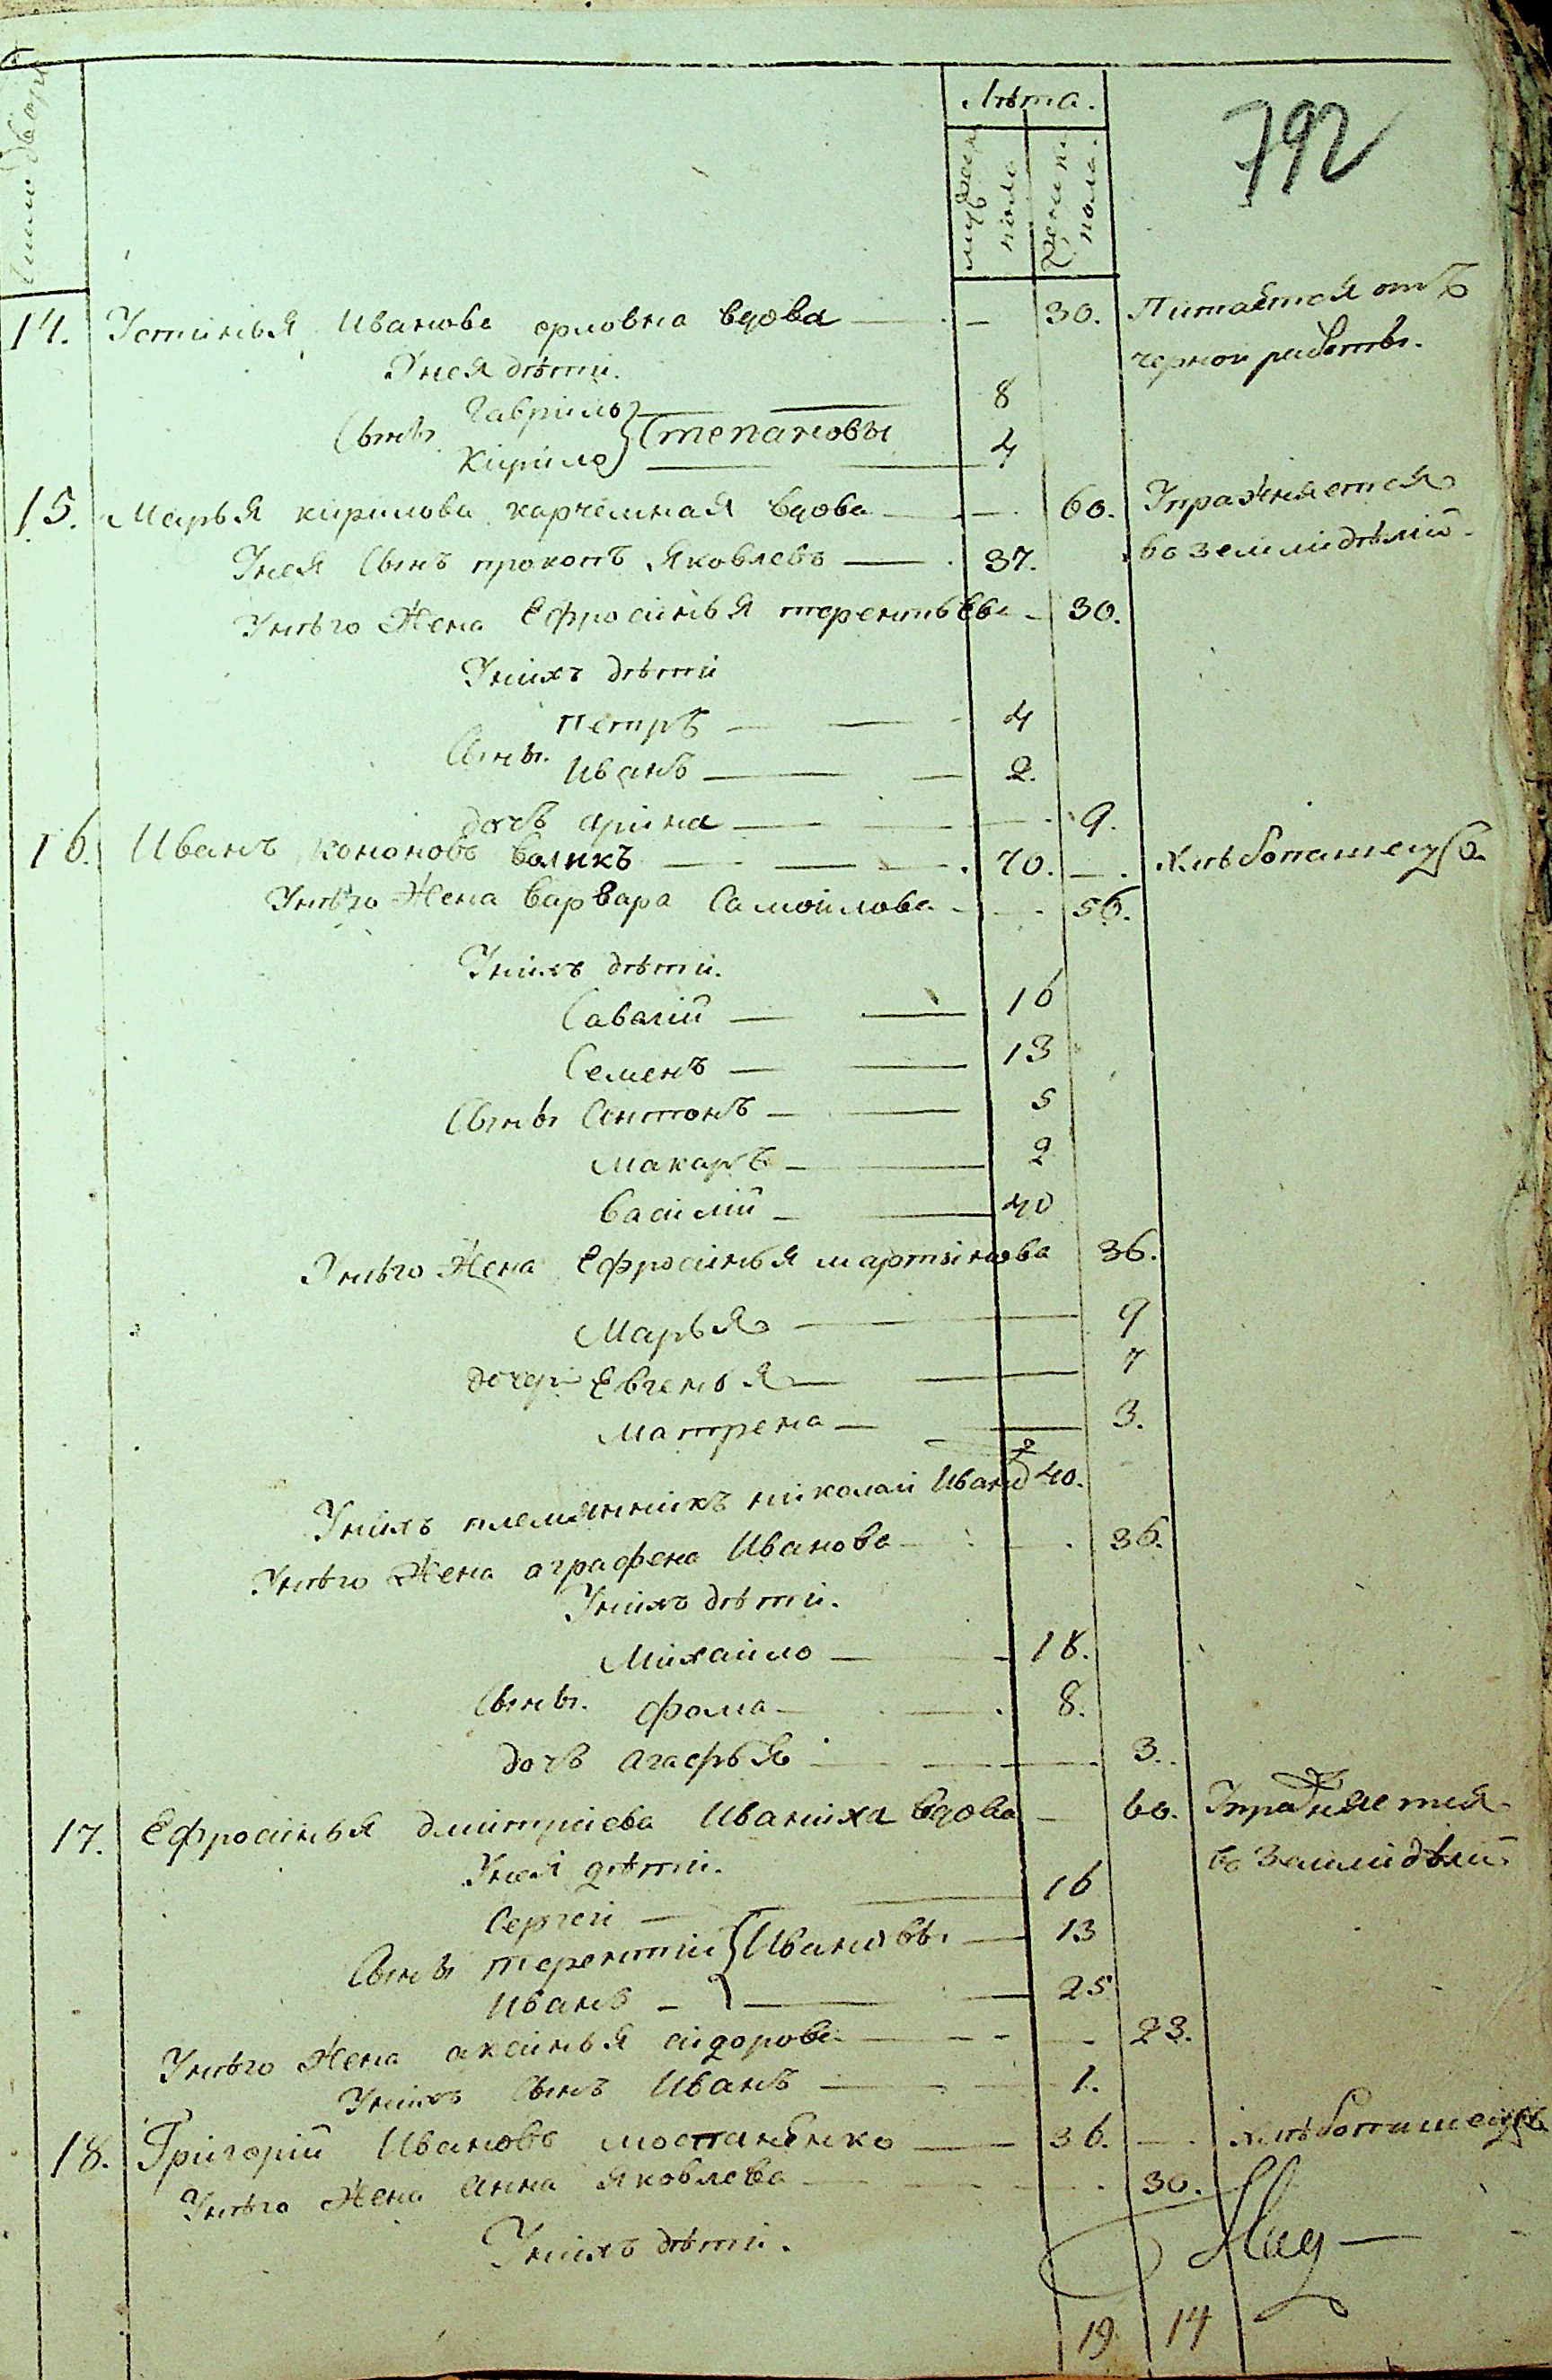 Лѣта.
мужеска пола
женска пола.
792
Число дворо
14. Устинья Иванова орловна вдова — 30. Питается отъ
Унея дѣти. черной работы.
Гаврило — 8
Сыны Степановы
Кирило — 4
15. Марья кирилова харчемная вдова — 60. Упражняется
Унея Сынъ прокопъ Яковлевъ — 37. во земли дѣлій.
Унѣго Жена Ефросинья терентьева — 30.
Унихъ дѣти
петръ — 4
Сыны.
Иванъ — 2.
дочь арина — 9.
16. Иванъ кононовъ воликъ — 70. — хлѣбопашецъ.
Унѣго Жена варвара Самойлова — 56.
Унихъ дѣти.
Саватій — 16
Семенъ — 13
Сыны Антонъ — 5
Макаръ — 2
василій — 40
Унѣго Жена Ефросинья мартинова 36.
Марья — 9
дочери Евгенья — 7
матрена — 3.
Унихъ племянникъ николай Иванов 40.
Унѣго Жена аграфена Иванова — 36.
Унихъ дѣти.
Михайло — 18.
Сыны. фома — 8.
дочь агафья — 3.
17. Ефросинья дмитриева Иваниха вдова — 60. Упражняется
Унея дѣти. во Земли дѣлій.
Сергей — 16
Сыны терентій Ивановы — 13
Иванъ — 25
Унѣго Жена аксинья сидорова — 23.
Унихъ Сынъ Иванъ — 1.
18. Григорій Ивановъ мостаненко — 36. — хлѣбопашецъ
Унѣго Жена анна яковлева — 30.
Унихъ дѣти.
19 14